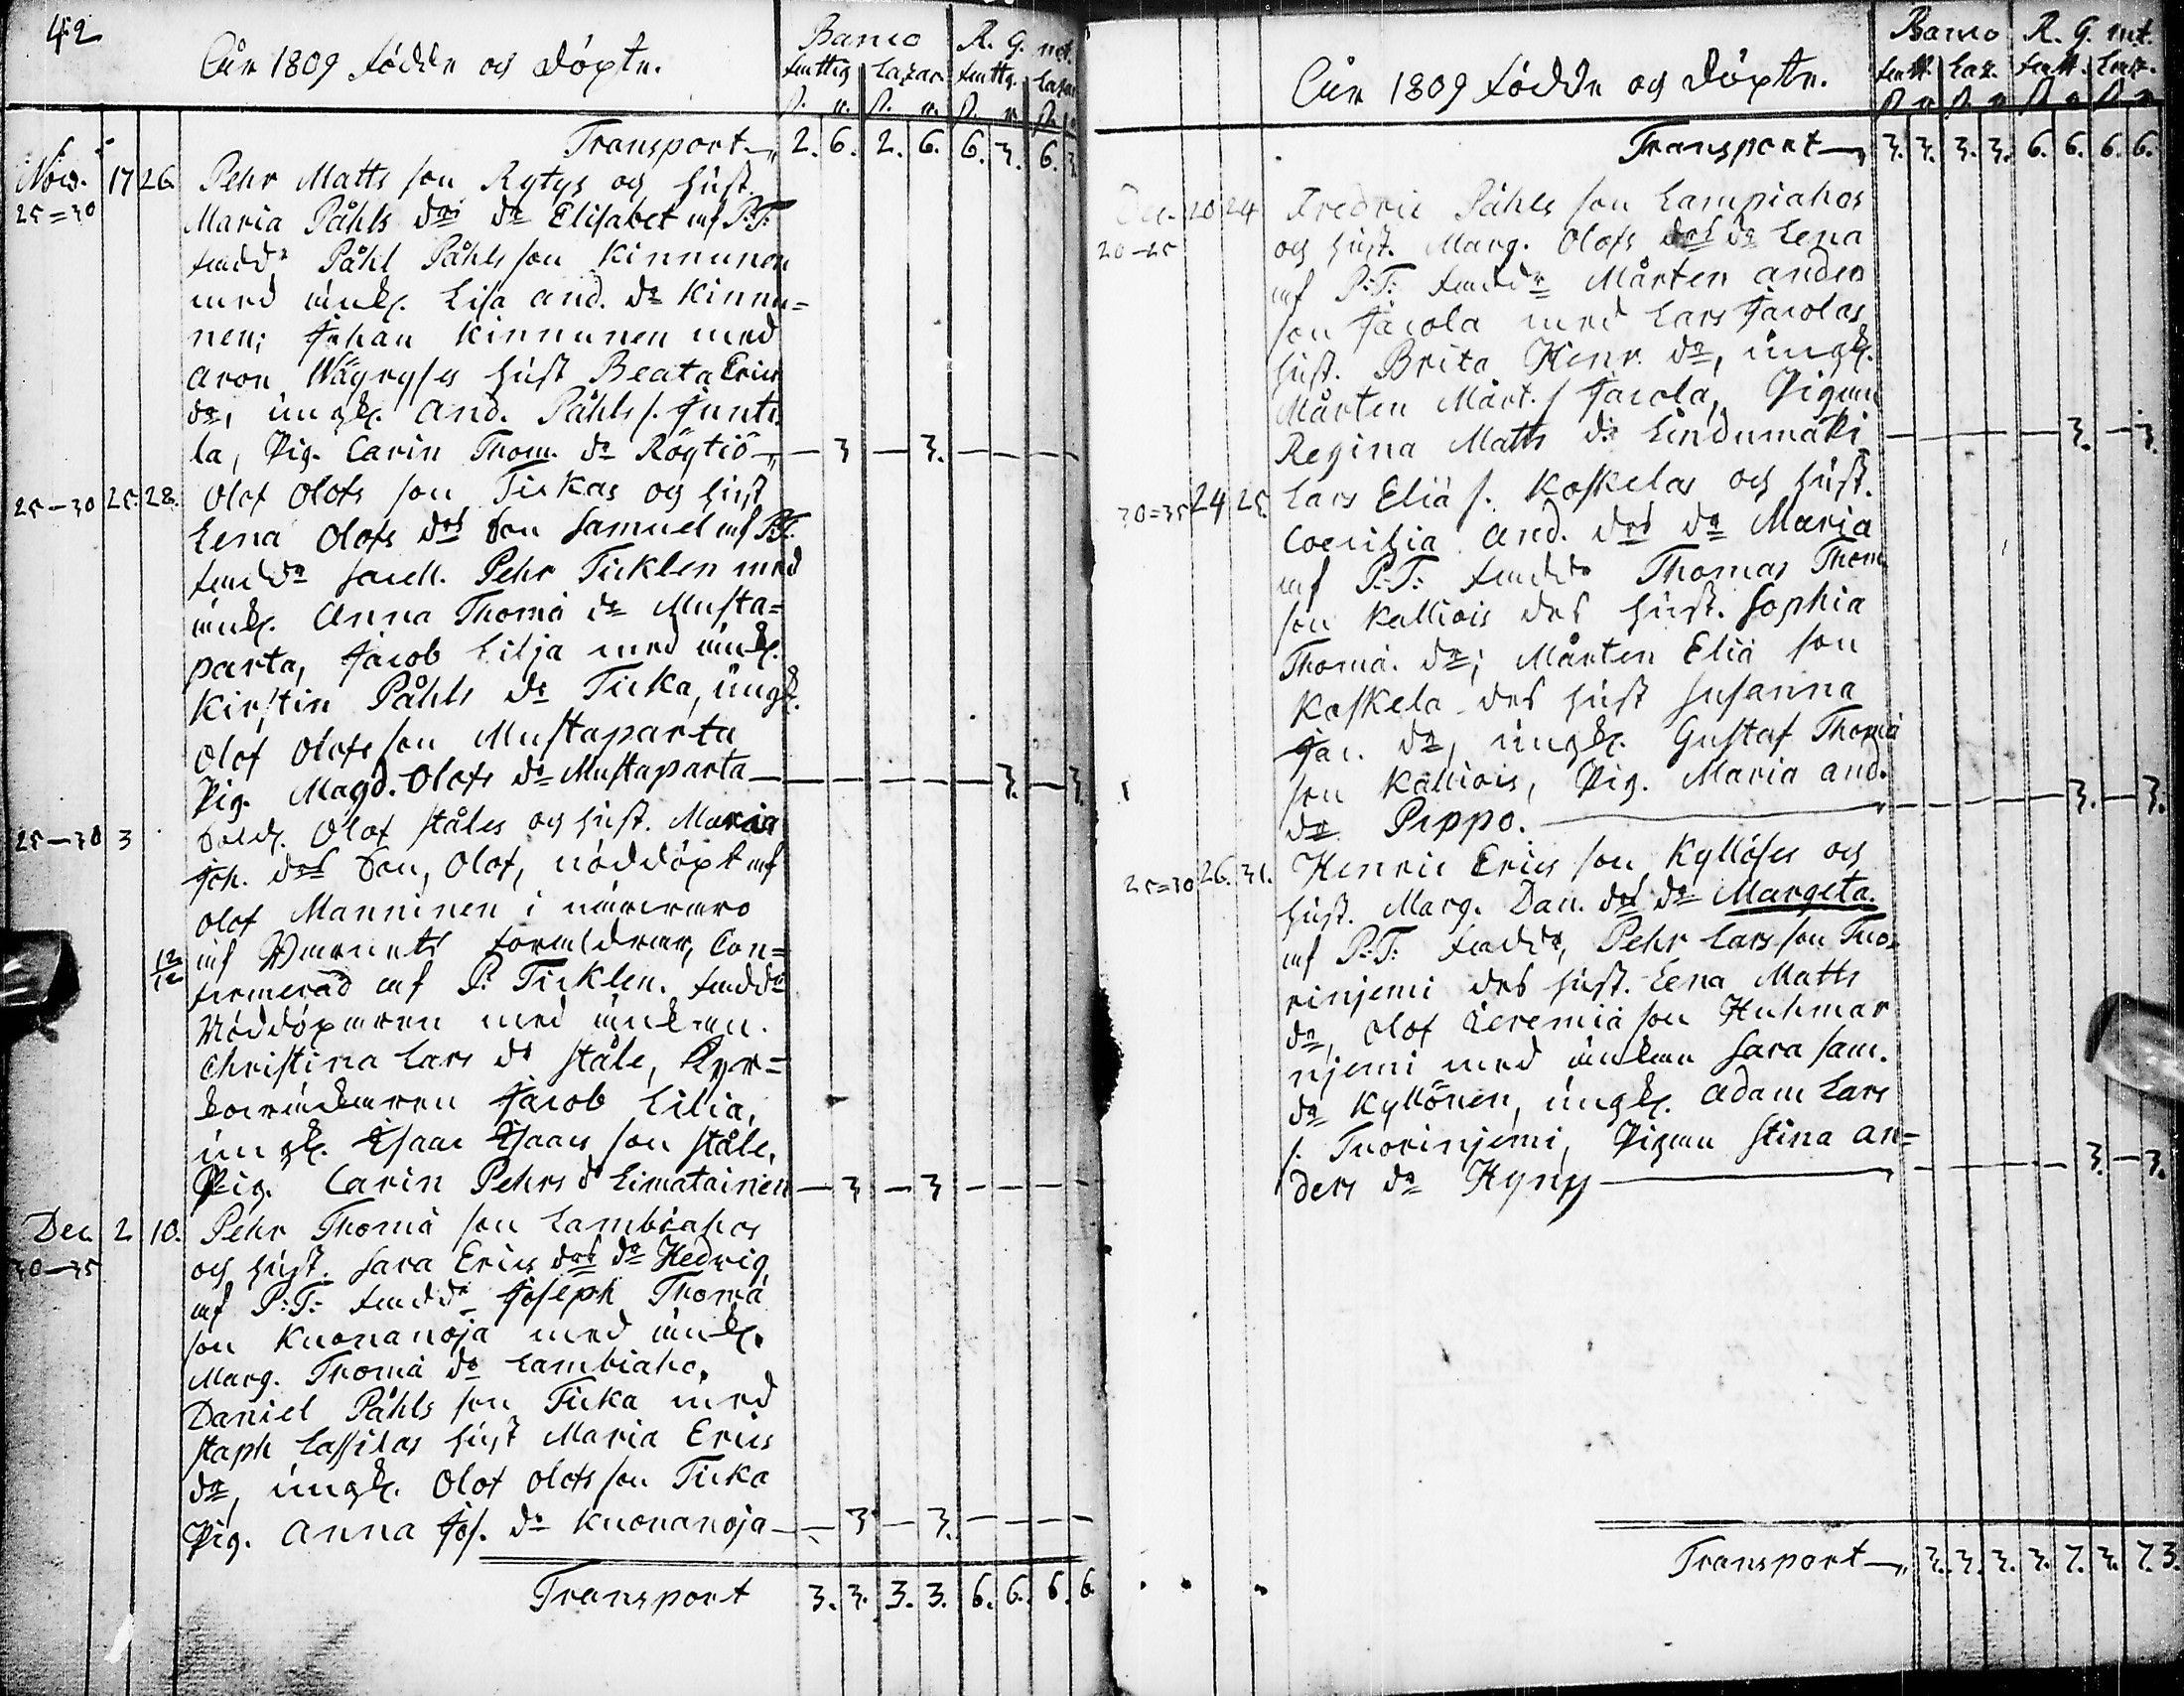 42
Åhr 1809 födde och döpte.
Banco R. G. mt.
fattig Lazar. fattig. Lazar.
ß. r. ß. r. ß. r. ß. r.
Transport 2. 6. 2. 6. 6. 3. 6. 3
Nov. 17 26. Pehr Matts son Rytys och hust.
25=30 Maria Påhls drs dr Elisabet af P.T.
faddr Påhl Påhls son Kinnunen
med änk. Lisa And. dr Kinnu=
nen; Johan Kinnunen med
Aron Wäyryses hust Beata Erics
dr, ungk. And. Påhls s. Junti
la, Pig. Carin Thom. dr Röytiö — 3 — 3. — — — —
25—30 25. 28. Olof Olofs son Tickas och hust
Lena Olofs drs Son Samuel af P.T.
faddr Sacell. Pehr Ticklen med
änk. Anna Thomä dr Musta=
parta, Jacob Lilja med änk.
Kirstin Påhls dr Ticka, ungk.
Olof Olofs son Mustaparta
Pig. Magd. Olofs dr Mustaparta — — — — — 3. — 3.
25—30 3 Sold. Olof Ståles och hust. Maria
Joh. drs Son, Olof, nöddöpt af
Olof Manninen i närvaro
12/12 af Barnets föräldrar, Con=
firmerad af P. Ticklen. faddr
Nöddöparen med änkan.
Christina Lars dr Ståle, Kyr=
kowäktaren Jacob Lilia,
ungk. Isaac Isaacs son Ståle,
Pig. Carin Pehrs d Limatainen — 3 — 3 — — — —
Dec. 2 10. Pehr Thomä son Lambiahos
30—35 och hust. Sara Erics drs dr Hedvig
af P:T: faddr Joseph Thomä
son Kuonanoja med änk.
Marg. Thomä dr Lambiaho,
Daniel Påhls son Ticka med
Staph Lassilas hust Maria Erics
dr, ungk. Olof Olofs son Ticka
Pig. Anna Jos. dr Kuonanoja — 3 — 3. — — — —
Transport 3. 3. 3. 3. 6. 6. 6. 6
Åhr 1809 födde och döpte.
Banco R. G. mt.
fatt. Laz. fatt. Laz.
ß r ß r ß r ß r
Transport 3. 3. 3. 3. 6. 6. 6. 6.
Dec. 20 24 Fredric Påhls son Lampiahos
20—25 och hust. Marg. Olofs drs dr Lena
af P:T: faddr Mårten Anders
son Jacola med Lars Jacolas
hust. Brita Henr. dr, ungk.
Mårten Mårt. s Jacola, Pigan
Regina Matts dr Lindumäki — — — — — 3. — 3.
30=35 24 25. Lars Eliä s. Koskelas och hust.
Coecilia And. drs dr Maria
af P:T: faddr Thomas Thom
son Kalliois dess hust. Sophia
Thomä. dr; Mårten Eliä son
Koskela dess hust Susanna
Jac. dr, ungk. Gustaf Thomä
son Kalliois, Pig. Maria And.
dr Pippo. — — — — — 3. — 3.
25=30 26. 31. Henric Erics son Kyllöses och
hust. Marg. Dan. drs dr Margeta.
af P.T: faddr, Pehr Lars son Tuo=
rinjemi dess hust. Lena Matts
dr, Olof Jeremiä son Huhmar
njemi med änkan Sara Sam.
dr Kyllönen, ungk. Adam Lars
s. Tuorinjemi, Pigan Stina An=
ders dr Hyny — — — — — 3. — 3.
Transport 3. 3. 3. 3. 7. 3. 7. 3.